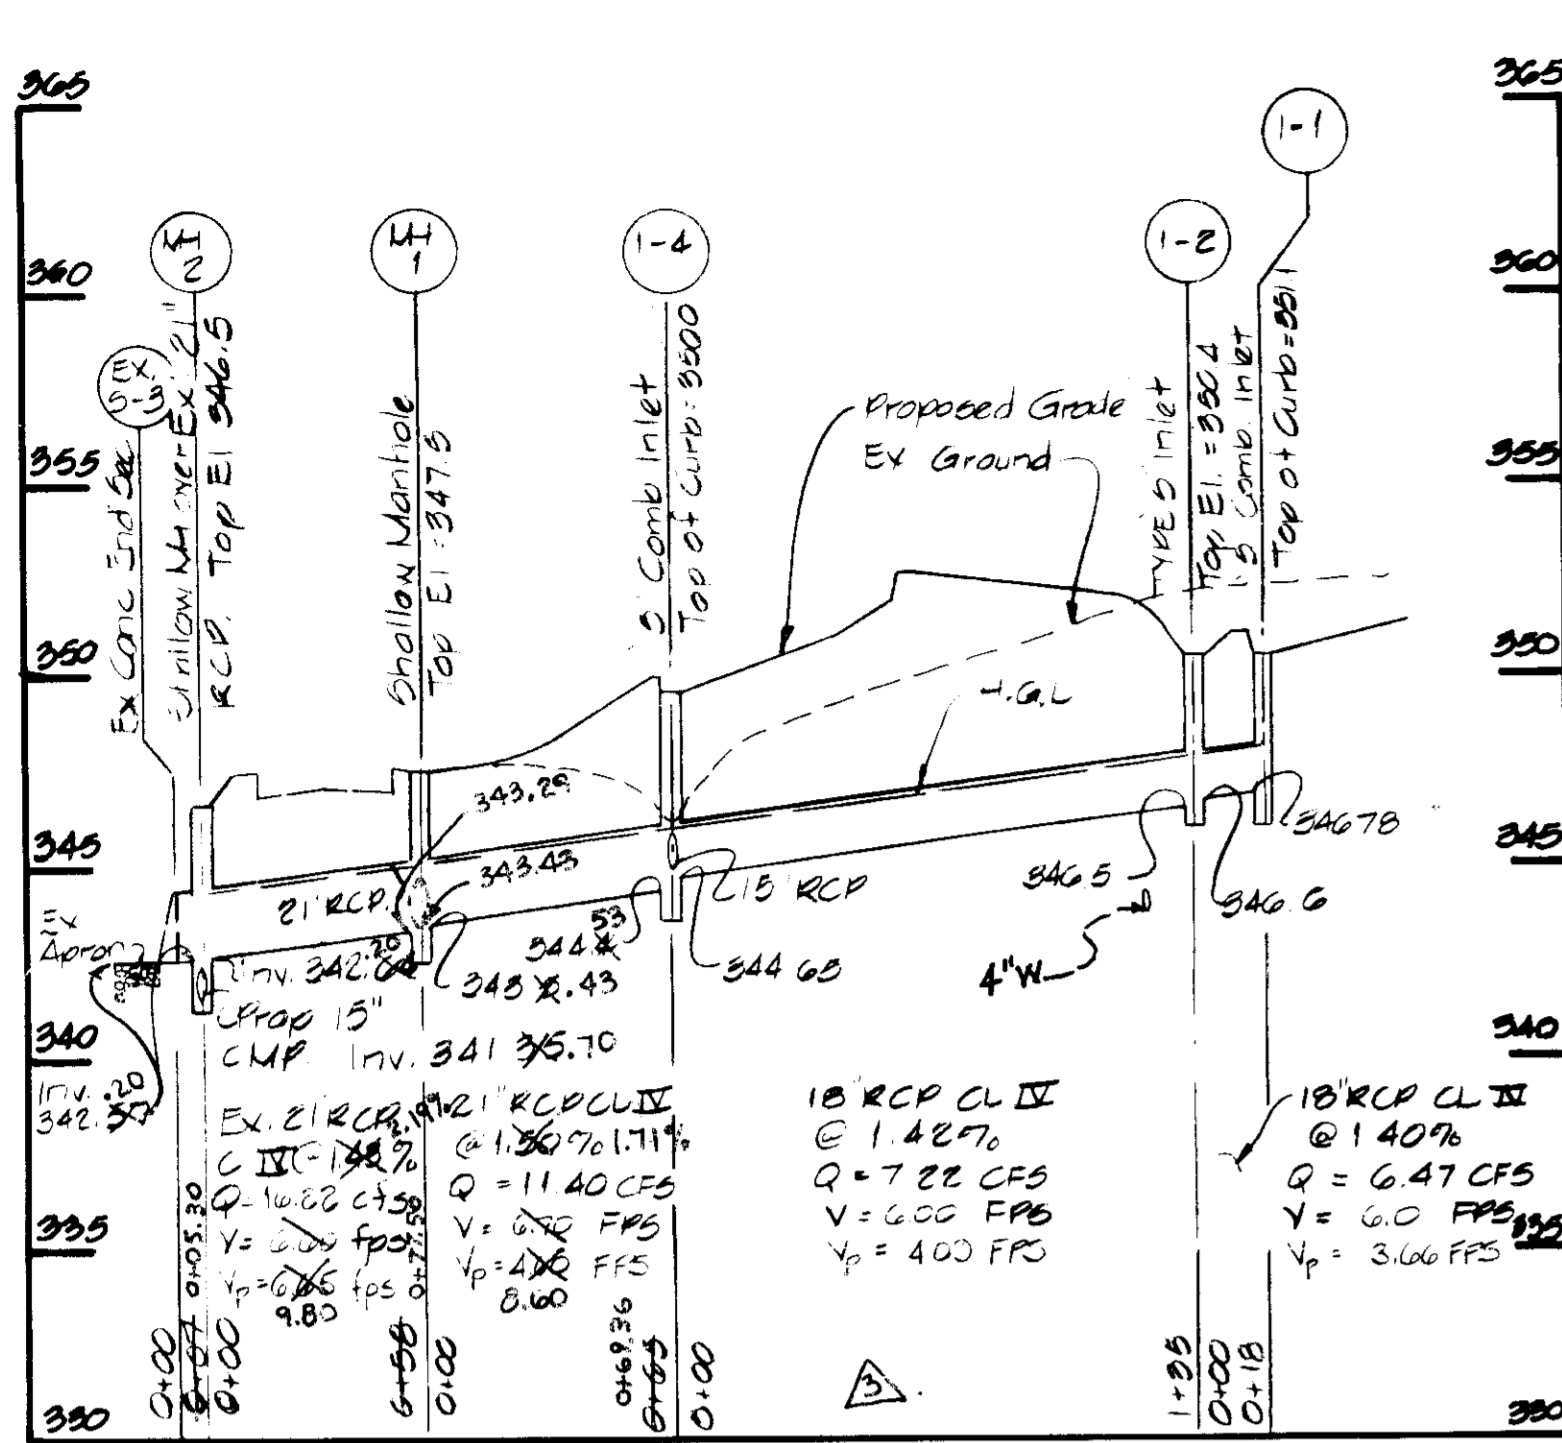 365
360
355
350
345
340
335
330
365
360
355
350
345
340
335
330
MH
2
MH
1
1-4
1-2
1-1
EX
S-3
Ex Conc End Sec
MH over Ex 21"
RCP. Top El 346.5
Shallow Manhole
Top El : 347.5
5 Comb Inlet
Top of Curb = 3500
TYPE S Inlet
Top El. = 350.4
5 Comb. Inlet
Top of Curb = 351.1
Proposed Grade
Ex Ground
H.G.L
343.29
343.43
21" RCP
15" RCP
346.5
4"W
346.6
34678
Ex
Apron
Inv. 342.20
Prop 15"
CMP Inv. 341 5.70
343 .43
344.53
344 65
Inv. .20
342.
Ex. 21" RCP
C IV - 2.19%
Q = 16.22 cfs
V = fps
Vp = fps
9.80
21" RCP CL IV
@ 1.50% 1.71%
Q = 11.40 CFS
V = 6.70 FPS
Vp = FPS
8.60
18" RCP CL IV
@ 1.42%
Q = 7 22 CFS
V = 6.00 FPS
Vp = 400 FPS
18" RCP CL IV
@ 1 40%
Q = 6.47 CFS
V = 6.0 FPS
Vp = 3.66 FPS
0+00
0+07 0+05.30
0+00
0+58 0+77.50
0+00
0+65 0+69.36
0+00
3
1+35
0+00
0+18